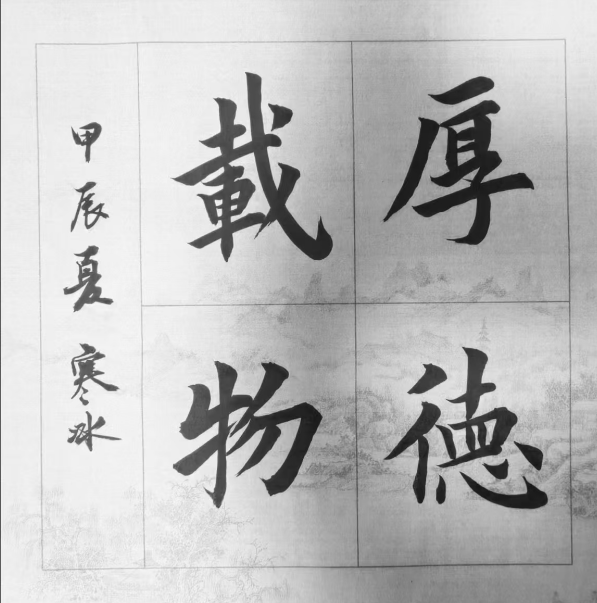 厚德
載物
甲辰夏 寒冰